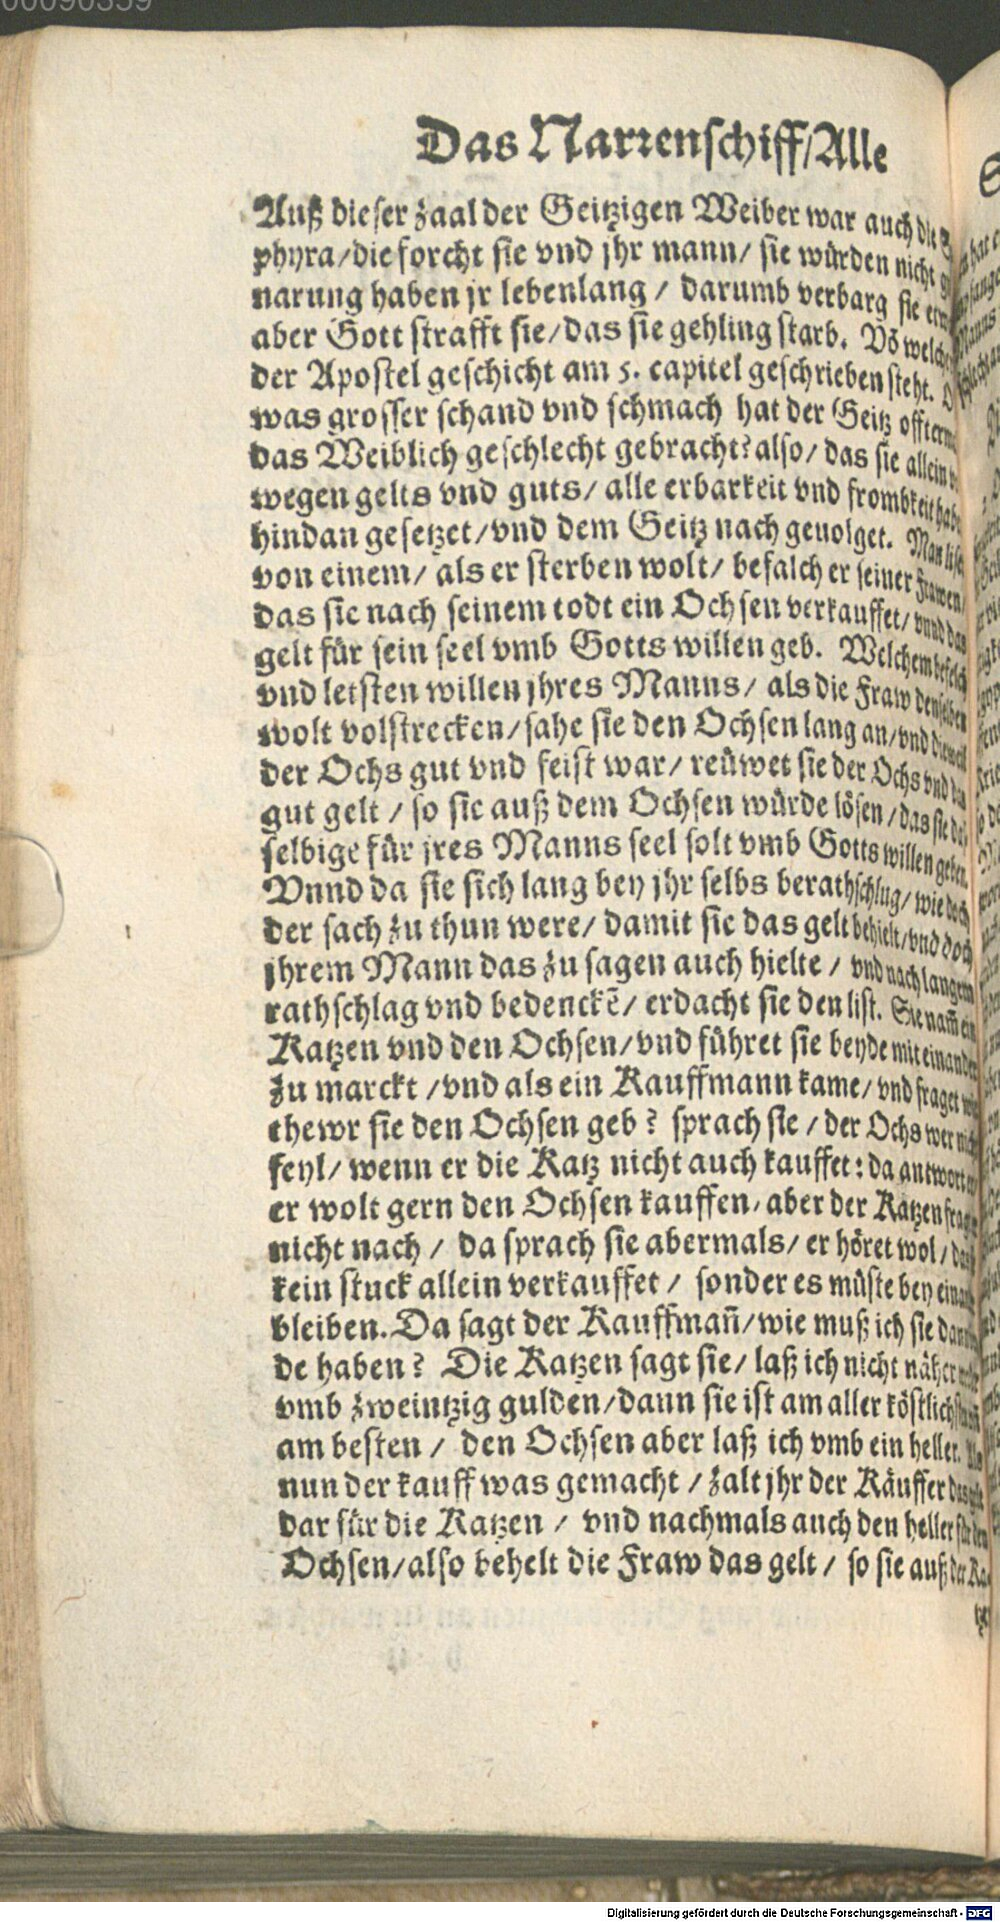 00090359
Das Narrenschiff/Alle
Auß dieser zaal der Geitzigen Weiber war auch die
phyra/die forcht sie vnd jhr mann/ sie würden nicht
narung haben jr lebenlang / darumb verbarg sie
aber Gott strafft sie/das sie gehling starb. Võ
der Apostel geschicht am 5. capitel geschrieben steht.
was grosser schand vnd schmach hat der Geitz
das Weiblich geschlecht gebracht? also/ das sie allein
wegen gelts vnd guts/ alle erbarkeit vnd frombkeit
hindan gesetzet/vnd dem Geitz nach geuolget. Man
von einem/ als er sterben wolt/ befalch er seiner Frawen/
das sie nach seinem todt ein Ochsen verkauffet/ vnnd das
gelt für sein seel vmb Gotts willen geb. Welchem befelch
vnd letsten willen jhres Manns/ als die Fraw denselben
wolt volstrecken/sahe sie den Ochsen lang an/vnd dieweil
der Ochs gut vnd feist war/ reüwet sie der Ochs vnd das
gut gelt / so sie auß dem Ochsen würde lösen /das sie
selbige für jres Manns seel solt vmb Gotts willen geben.
Vnnd da sie sich lang bey jhr selbs berathschlug/ wie doch
der sach zu thun were/ damit sie das gelt behielt/vnd doch
jhrem Mann das zu sagen auch hielte / vnd nach langem
rathschlag vnd bedenckẽ/ erdacht sie den list. Sie nam̃ ein
Katzen vnd den Ochsen/vnd führet sie beyde mit einander
zu marckt /vnd als ein Kauffmann kame/ vnd fraget wie
thewr sie den Ochsen geb? sprach sie / der Ochs wer nicht
feyl/ wenn er die Katz nicht auch kauffet: da antwort
er wolt gern den Ochsen kauffen, aber der Katzen
nicht nach / da sprach sie abermals/ er höret wol/
kein stuck allein verkauffet / sonder es müste bey
bleiben. Da sagt der Kauffmañ/wie muß ich sie
de haben? Die Katzen sagt sie/ laß ich nicht näher
vmb zweintzig gulden/dann sie ist am aller
am besten / den Ochsen aber laß ich vmb ein heller.
nun der kauff was gemacht / zalt jhr der Käuffer
dar für die Katzen / vnd nachmals auch den heller für den
Ochsen/also behelt die Fraw das gelt / so sie auß der
Digitalisierung gefördert durch die Deutsche Forschungsgemeinschaft - DFG